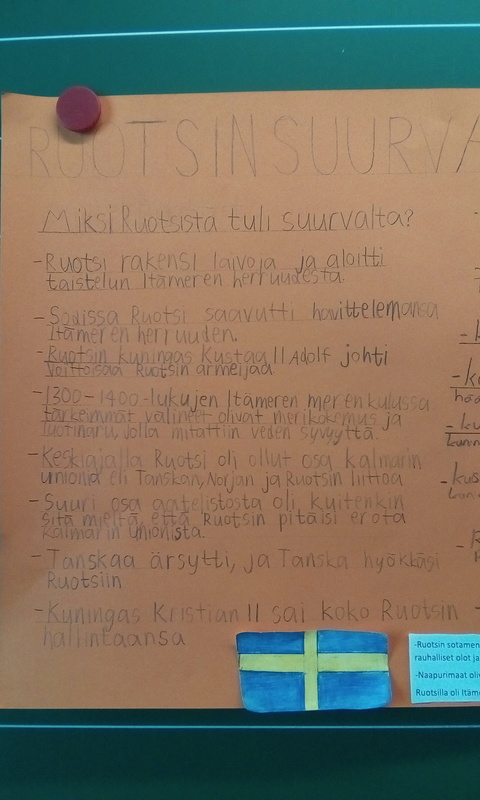 RUOTSIN SUURVA
Miksi Ruotsista tuli suurvalta?
-Ruotsi rakensi laivoja ja aloitti
taistelun Itämeren herruudesta.
-Sodissa Ruotsi saavutti havittelemansa
Itämeren herruuden.
-Ruotsin kuningas Kustav II Adolf johti
voittoisaa Ruotsin armeijaa
-1300-1400-lukujen Itämeren merenkulussa
tärkeimmät välineet olivat merikokemus ja
luotinaru, jolla mitattiin veden syvyyttä.
-Keskiajalla Ruotsi oli ollut osa kalmarin
unionia eli Tanskan, Norjan ja Ruotsin liittoa
-Suuri osa aatelistosta oli kuitenkin
sitä mieltä, että Ruotsin pitäisi erota
kalmarin unionista.
-Tanskaa ärsytti, ja Tanska hyökkäsi
Ruotsiin
-Kuningas Kristian II sai koko Ruotsin
hallintaansa
-Ruotsin sotamen
rauhalliset olot ja
-Naapurimaat oli
Ruotsilla oli Itäm